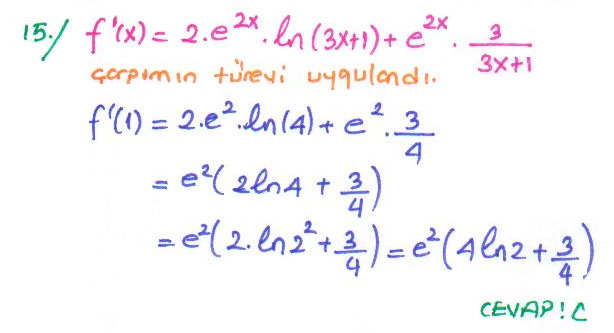 15./ f'(x) = 2.e^{2x}.ln(3x+1) + e^{2x}.\frac{3}{3x+1}
çarpımın türevi uygulandı.
f'(1) = 2.e^2.ln(4) + e^2.\frac{3}{4}
= e^2(2ln4 + \frac{3}{4})
= e^2(2.ln2^2 + \frac{3}{4}) = e^2(4ln2 + \frac{3}{4})
CEVAP: C